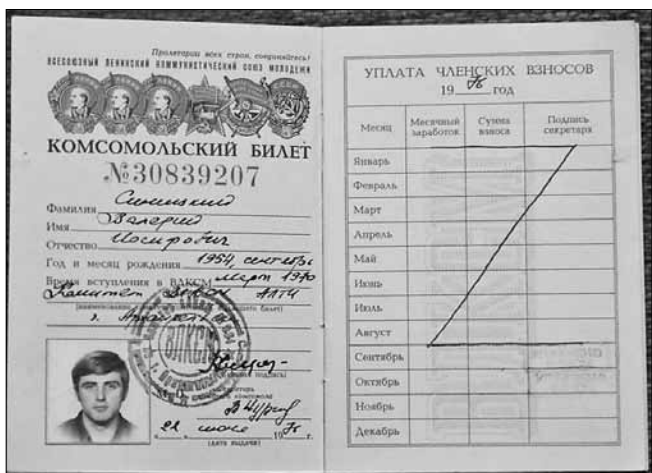 Пролетарии всех стран, соединяйтесь!
ВСЕСОЮЗНЫЙ ЛЕНИНСКИЙ КОММУНИСТИЧЕСКИЙ СОЮЗ МОЛОДЕЖИ
КОМСОМОЛЬСКИЙ БИЛЕТ
№30839207
Фамилия
Имя Валерий
Отчество Иосифович
Год и месяц рождения 1954, сентябрь
Время вступления в ВЛКСМ март 1970
Комитет ВЛКСМ АЛТИ
г.
ВЛКСМ
22 июля 1976 г.
(ДАТА ВЫДАЧИ)
УПЛАТА ЧЛЕНСКИХ ВЗНОСОВ
1976 год
Месяц Месячный заработок Сумма взноса Подпись секретаря
Январь
Февраль
Март
Апрель
Май
Июнь
Июль
Август
Сентябрь
Октябрь
Ноябрь
Декабрь